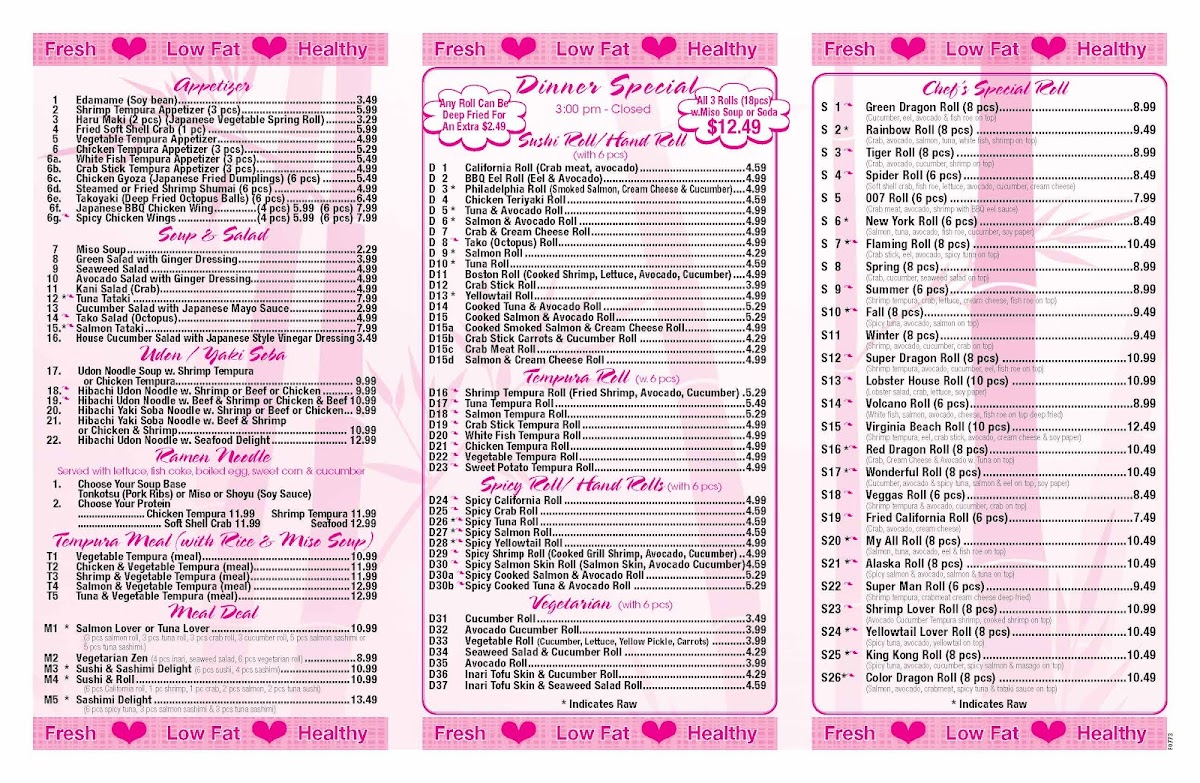 Fresh Low Fat Healthy
Appetizer
1 Edamame (Soy bean) 3.49
2 Shrimp Tempura Appetizer (3 pcs) 5.99
3 Haru Maki (2 pcs) (Japanese Vegetable Spring Roll) 3.29
4 Fried Soft Shell Crab (1 pc) 5.99
5 Vegetable Tempura Appetizer 4.99
6 Chicken Tempura Appetizer (3 pcs) 5.29
6a. White Fish Tempura Appetizer (3 pcs) 5.49
6b. Crab Stick Tempura Appetizer (3 pcs) 4.99
6c. Chicken Gyoza (Japanese Fried Dumplings) (6 pcs) 5.49
6d. Steamed or Fried Shrimp Shumai (6 pcs) 4.99
6e. Takoyaki (Deep Fried Octopus Balls) (6 pcs) 6.49
6f. Japanese BBQ Chicken Wing (4 pcs) 5.99 (6 pcs) 7.99
6g. Spicy Chicken Wings (4 pcs) 5.99 (6 pcs) 7.99
Soup & Salad
7 Miso Soup 2.29
8 Green Salad with Ginger Dressing 3.99
9 Seaweed Salad 4.99
10 Avocado Salad with Ginger Dressing 4.99
11 Kani Salad (Crab) 4.99
12 * Tuna Tataki 7.99
13 Cucumber Salad with Japanese Mayo Sauce 2.99
14 Tako Salad (Octopus) 4.99
15. * Salmon Tataki 7.99
16. House Cucumber Salad with Japanese Style Vinegar Dressing 3.49
Udon / Yaki Soba
17. Udon Noodle Soup w. Shrimp Tempura
or Chicken Tempura 9.99
18. Hibachi Udon Noodle w. Shrimp or Beef or Chicken 9.99
19. Hibachi Udon Noodle w. Beef & Shrimp or Chicken & Beef 10.99
20. Hibachi Yaki Soba Noodle w. Shrimp or Beef or Chicken 9.99
21. Hibachi Yaki Soba Noodle w. Beef & Shrimp
or Chicken & Shrimp 10.99
22. Hibachi Udon Noodle w. Seafood Delight 12.99
Ramen Noodle
Served with lettuce, fish cake, boiled egg, sweet corn & cucumber
1. Choose Your Soup Base
Tonkotsu (Pork Ribs) or Miso or Shoyu (Soy Sauce)
2. Choose Your Protein
Chicken Tempura 11.99 Shrimp Tempura 11.99
Soft Shell Crab 11.99 Seafood 12.99
Tempura Meal (with Rice & Miso Soup)
T1 Vegetable Tempura (meal) 10.99
T2 Chicken & Vegetable Tempura (meal) 11.99
T3 Shrimp & Vegetable Tempura (meal) 11.99
T4 Salmon & Vegetable Tempura (meal) 12.99
T5 Tuna & Vegetable Tempura (meal) 12.99
Meal Deal
M1 * Salmon Lover or Tuna Lover 10.99
(3 pcs salmon roll, 3 pcs tuna roll, 3 pcs crab roll, 3 cucumber roll, 5 pcs salmon sashimi or
5 pcs tuna sashimi)
M2 Vegetarian Zen (4 pcs inari, seaweed salad, 6 pcs vegetarian roll) 8.99
M3 * Sushi & Sashimi Delight (6 pcs sushi, 4 pcs sashimi) 10.99
M4 * Sushi & Roll 10.99
(6 pcs California roll, 1 pc shrimp, 1 pc crab, 2 pcs salmon, 2 pcs tuna sushi)
M5 * Sashimi Delight 13.49
(6 pcs spicy tuna, 3 pcs salmon sashimi & 3 pcs tuna sashimi)
Fresh Low Fat Healthy
Fresh Low Fat Healthy
Dinner Special
3:00 pm - Closed
Any Roll Can Be
Deep Fried For
An Extra $2.49
All 3 Rolls (18pcs)
w.Miso Soup or Soda
$12.49
Sushi Roll/Hand Roll
(with 6 pcs)
D 1 California Roll (Crab meat, avocado) 4.59
D 2 BBQ Eel Roll (Eel & Avocado) 4.99
D 3 * Philadelphia Roll (Smoked Salmon, Cream Cheese & Cucumber) 4.99
D 4 Chicken Teriyaki Roll 4.59
D 5 * Tuna & Avocado Roll 4.99
D 6 * Salmon & Avocado Roll 4.99
D 7 Crab & Cream Cheese Roll 4.99
D 8 Tako (Octopus) Roll 4.99
D 9 * Salmon Roll 4.29
D10 * Tuna Roll 4.59
D11 Boston Roll (Cooked Shrimp, Lettuce, Avocado, Cucumber) 4.99
D12 Crab Stick Roll 3.99
D13 * Yellowtail Roll 4.99
D14 Cooked Tuna & Avocado Roll 5.29
D15 Cooked Salmon & Avocado Roll 5.29
D15a Cooked Smoked Salmon & Cream Cheese Roll 4.99
D15b Crab Stick Carrots & Cucumber Roll 4.29
D15c Crab Meat Roll 4.29
D15d Salmon & Cream Cheese Roll 4.99
Tempura Roll (w. 6 pcs)
D16 Shrimp Tempura Roll (Fried Shrimp, Avocado, Cucumber) 5.29
D17 Tuna Tempura Roll 5.49
D18 Salmon Tempura Roll 5.29
D19 Crab Stick Tempura Roll 4.99
D20 White Fish Tempura Roll 4.99
D21 Chicken Tempura Roll 4.99
D22 Vegetable Tempura Roll 4.99
D23 Sweet Potato Tempura Roll 4.99
Spicy Roll/ Hand Rolls (with 6 pcs)
D24 Spicy California Roll 4.99
D25 Spicy Crab Roll 4.99
D26 * Spicy Tuna Roll 4.99
D27 * Spicy Salmon Roll 4.99
D28 * Spicy Yellowtail Roll 4.99
D29 Spicy Shrimp Roll (Cooked Grill Shrimp, Avocado, Cucumber) 4.99
D30 Spicy Salmon Skin Roll (Salmon Skin, Avocado Cucumber) 4.59
D30a Spicy Cooked Salmon & Avocado Roll 5.29
D30b Spicy Cooked Tuna & Avocado Roll 5.29
Vegetarian (with 6 pcs)
D31 Cucumber Roll 3.49
D32 Avocado Cucumber Roll 3.99
D33 Vegetable Roll (Cucumber, Lettuce, Yellow Pickle, Carrots) 3.99
D34 Seaweed Salad & Cucumber Roll 4.29
D35 Avocado Roll 3.99
D36 Inari Tofu Skin & Cucumber Roll 4.29
D37 Inari Tofu Skin & Seaweed Salad Roll 4.59
* Indicates Raw
Fresh Low Fat Healthy
Fresh Low Fat Healthy
Chef's Special Roll
S 1 Green Dragon Roll (8 pcs) 8.99
(Cucumber, eel, avocado & fish roe on top)
S 2 * Rainbow Roll (8 pcs) 9.49
(Crab, avocado, salmon, tuna, white fish, shrimp on top)
S 3 Tiger Roll (8 pcs) 8.99
(Crab, avocado, cucumber, shrimp on top)
S 4 Spider Roll (6 pcs) 8.49
(Soft shell crab, fish roe, lettuce, avocado, cucumber, cream cheese)
S 5 007 Roll (6 pcs) 7.99
(Crab meat, avocado, shrimp with BBQ eel sauce)
S 6 * New York Roll (6 pcs) 8.49
(Salmon, tuna, avocado, fish roe, cucumber, soy paper)
S 7 * Flaming Roll (8 pcs) 10.49
(Crab stick, avocado, eel, spicy tuna on top)
S 8 Spring (8 pcs) 8.99
(Crab, cucumber, seaweed salad on top)
S 9 Summer (6 pcs) 8.99
(Shrimp tempura, crab, lettuce, cream cheese, fish roe on top)
S10 * Fall (8 pcs) 9.49
(Spicy tuna, avocado, salmon on top)
S11 Winter (8 pcs) 8.99
(Shrimp, avocado, cucumber, crab on top)
S12 Super Dragon Roll (8 pcs) 10.99
(Shrimp tempura, avocado, cucumber, eel, fish roe on top)
S13 Lobster House Roll (10 pcs) 10.99
(Lobster salad, crab, lettuce, soy paper)
S14 Volcano Roll (6 pcs) 8.99
(White fish, salmon, avocado, cheese, fish roe on top deep fried)
S15 Virginia Beach Roll (10 pcs) 12.49
(Shrimp tempura, eel, crab stick, avocado, cream cheese & soy paper)
S16 * Red Dragon Roll (8 pcs) 10.49
(Crab, Cream Cheese & Avocado w. Tuna on top)
S17 * Wonderful Roll (8 pcs) 10.49
(Cucumber, avocado & spicy tuna, salmon & eel on top, soy paper)
S18 Veggas Roll (6 pcs) 8.49
(Shrimp tempura & avocado, cucumber, crab on top)
S19 Fried California Roll (6 pcs) 7.49
(Crab, avocado, cream cheese)
S20 * My All Roll (8 pcs) 10.49
(Salmon, tuna, avocado, eel & fish roe on top)
S21 * Alaska Roll (8 pcs) 10.49
(Spicy salmon & avocado, salmon & tuna on top)
S22 Super Man Roll (6 pcs) 9.49
(Shrimp tempura, crabmeat cream cheese deep fried)
S23 Shrimp Lover Roll (8 pcs) 10.99
(Avocado Cucumber Tempura shrimp, cooked shrimp on top)
S24 * Yellowtail Lover Roll (8 pcs) 10.49
(Spicy tuna, avocado, yellowtail on top)
S25 * King Kong Roll (8 pcs) 10.49
(Spicy tuna, avocado, cucumber, spicy salmon & masago on top)
S26 * Color Dragon Roll (8 pcs) 10.49
(Salmon, avocado, crabmeat, spicy tuna & tataki sauce on top)
* Indicates Raw
Fresh Low Fat Healthy
F0773